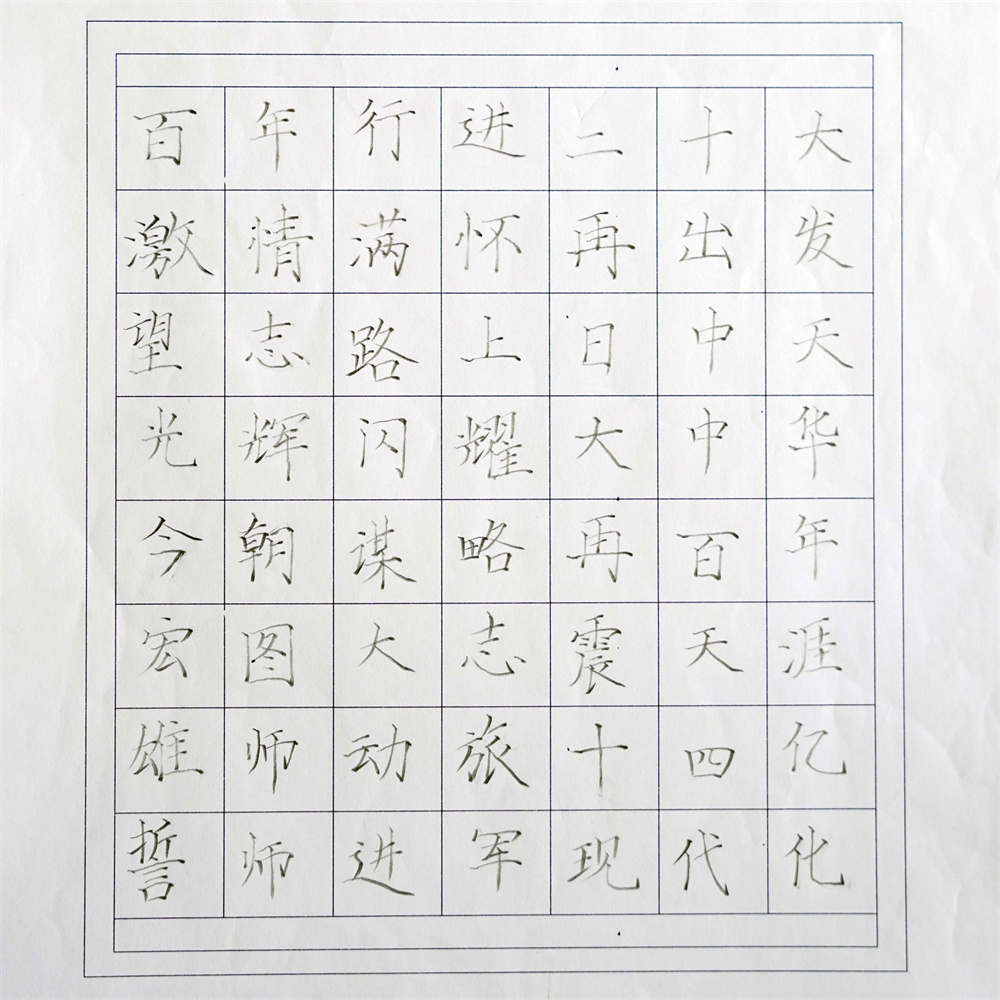 百年行进二十大
激情满怀再出发
望志路上日中天
光辉闪耀大中华
今朝谋略再百年
宏图大志震天涯
雄师动旅十四亿
誓师进军现代化